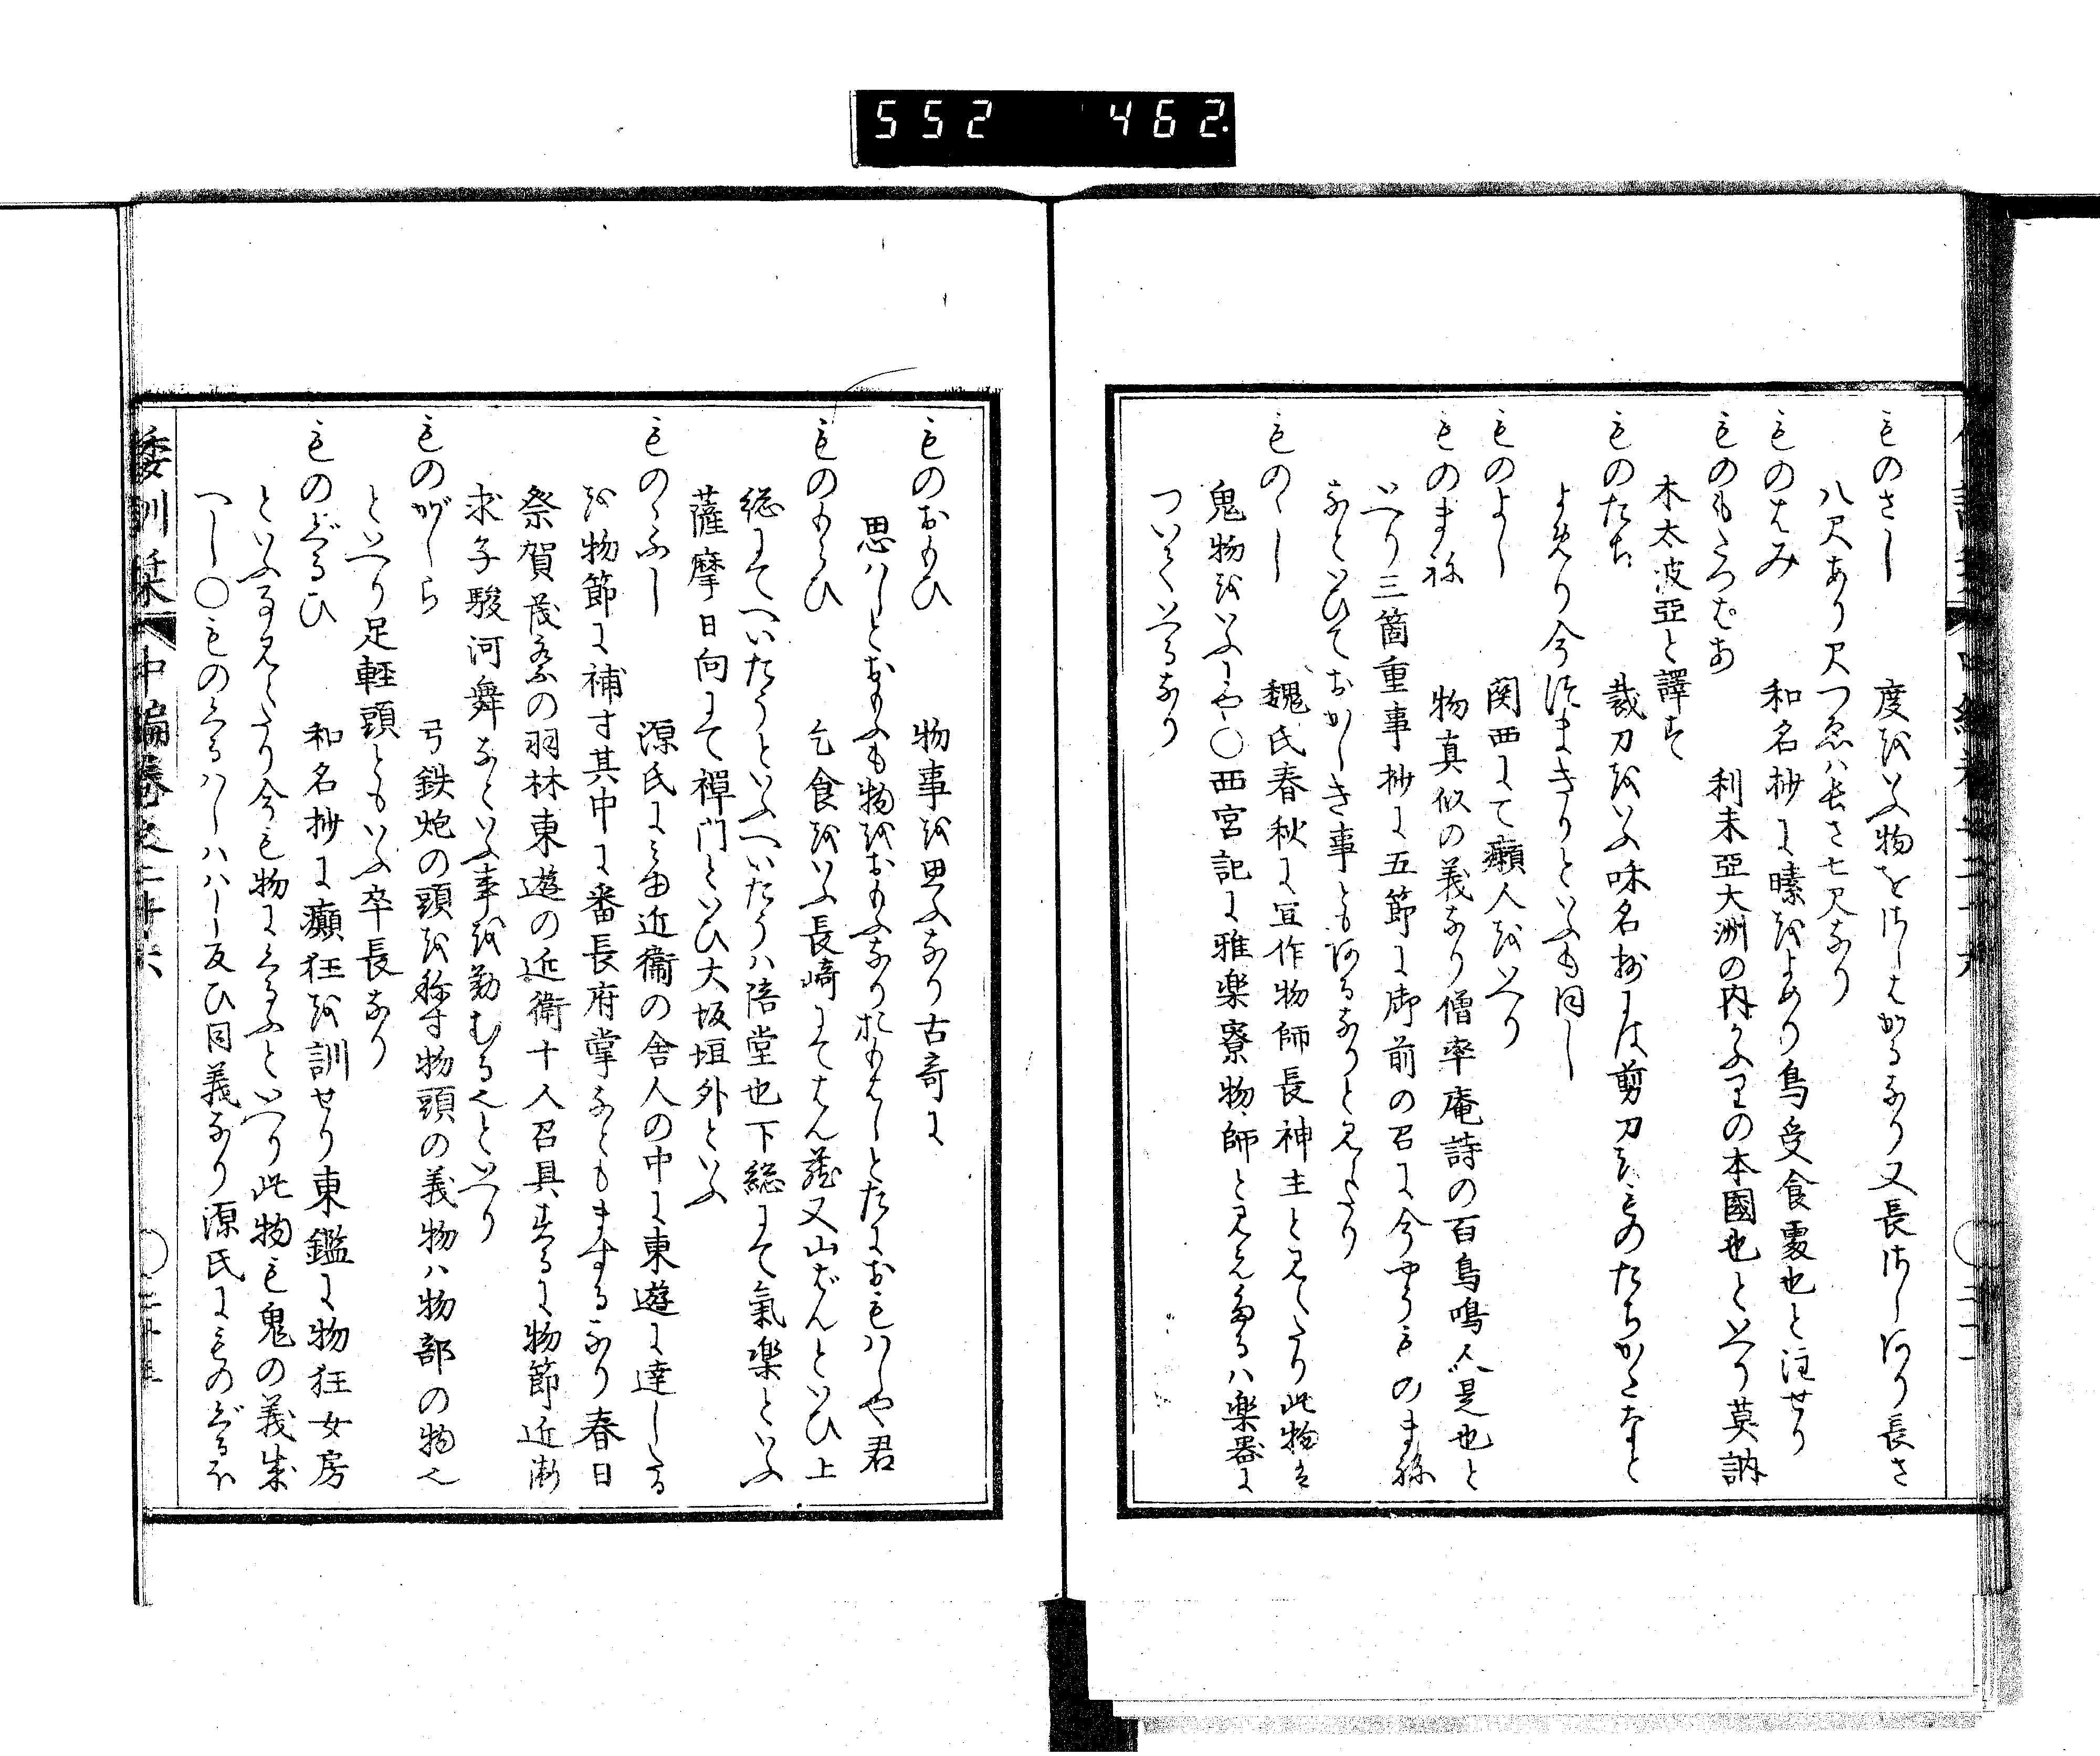 552 462.
ものさし 度をいふ物をさしはかるなり又長さしあり長さ
八尺あり尺つゑハ長さ七尺なり
ものはみ 和名抄に嗉をよめり鳥受食處也と注せり
ものもたつぱあ 利未亞大洲の内の本國也といへり莫訥
木太波亞と譯す
ものたち 裁刀をいふ和名抄には剪刀をものたちかたなと
よめり今たまきりといふも同し
ものよし 関西にて癩人をいへり
ものまね 物真似の義なり僧率庵詩の百鳥鳴人是也と
いへり三箇重事抄に五節に御前の召に今やうものまね
なといひておかしき事ともあるなりと見えたり
ものゝし 魏氏春秋に宜作物師長神主と見えたり此物は
鬼物をいふにや〇西宮記に雅楽寮物師と見えたるハ楽器に
ついていへるなり
ものおもひ 物事を思ふなり古哥に
思ハしとおもふも物をおもふなりおもはしとたにおもハしや君
ものもらひ 乞食をいふ長崎にてはん蔵又山ばんといひ上
総にてへいたうといふへいたうハ陪堂也下総にて氣楽といふ
薩摩日向にて禪門といひ大坂垣外といふ
ものゝふし 源氏にみゆ近衛の舎人の中に東遊に達したる
を物節に補す其中に番長府掌なともまするなり春日
祭賀茂祭の羽林東遊の近衛十人召具するに物節近衛
求子駿河舞なといふ事を勤むる也といへり
ものがしら 弓鉄炮の頭を称す物頭の義物ハ物部の物也
といへり足輕頭ともいふ卒長なり
ものぐるひ 和名抄に癲狂を訓せり東鑑に物狂女房
といふ事見えたり今も物にくるふといへり此物も鬼の義成
へし〇ものくるハしハハし反ひ同義なり源氏にものぐるほ
倭訓栞 中編巻之二十六